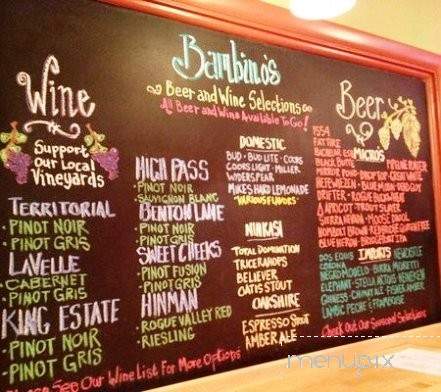 Bambino's
Beer and Wine Selections
All Beer and Wine Available To Go!
Wine
Support
our Local
Vineyards
TERRITORIAL
• PINOT NOIR
• PINOT GRIS
LAVELLE
• CABERNET
• PINOT GRIS
KING ESTATE
• PINOT NOIR
• PINOT GRIS
HIGH PASS
• PINOT NOIR
• SAUVIGNON BLANC
BENTON LANE
• PINOT NOIR
• PINOT GRIS
SWEET CHEEKS
• PINOT FUSION
• PINOT GRIS
HINMAN
• ROGUE VALLEY RED
• RIESLING
See Our Wine List For More Options
DOMESTIC
BUD · BUD LITE · COORS
COORS LIGHT · MILLER
WIDERS PEAR
MIKES HARD LEMONADE
VARIOUS FLAVORS
NINKASI
TOTAL DOMINATION
TRICERAHOPS
BELIEVER
OATIS STOUT
OAKSHIRE
ESPRESSO STOUT
AMBER ALE
Beer
MICROS
1554
FAT TIRE
BLACK BUTTE
MIRROR POND · DROP TOP
HEFEWEIZEN · BLUE MOON · DEAD GUY
DRIFTER · ROGUE
APRICOT
SIERRA NEVADA · MOOSE DROOL
BOMBAY BROWN
BLUE HERON · BRIDGEPORT IPA
IMPORTS
DOS EQUIS NEWCASTLE
CORONA
NEGRO MODELO · BIRRA MORETTI
ELEPHANT · STELLA ARTOIS HEINEKEN
GUINNESS · CHIMAY ALE
LAMBIC PECHE & FRAMBOISE
Check Out Our Seasonal Selections
menupix